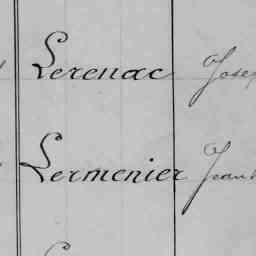 Lerenac Josep
Lermenier Jean